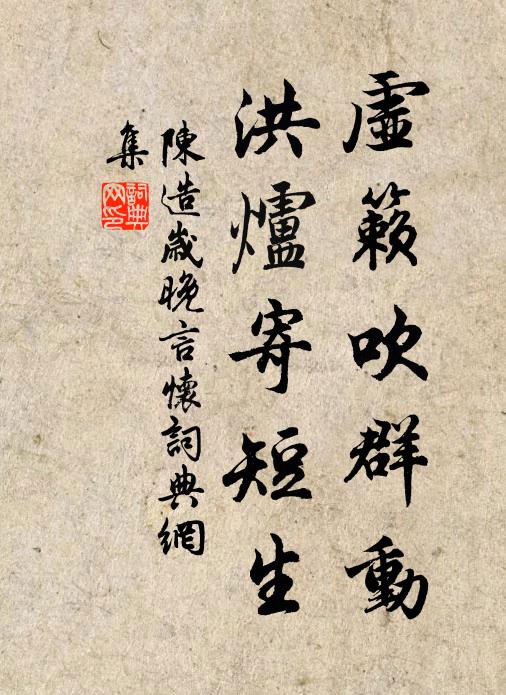 虛籟吹群動
洪爐寄短生
陳造歲晚言懷詞典網
集
詞典
网印